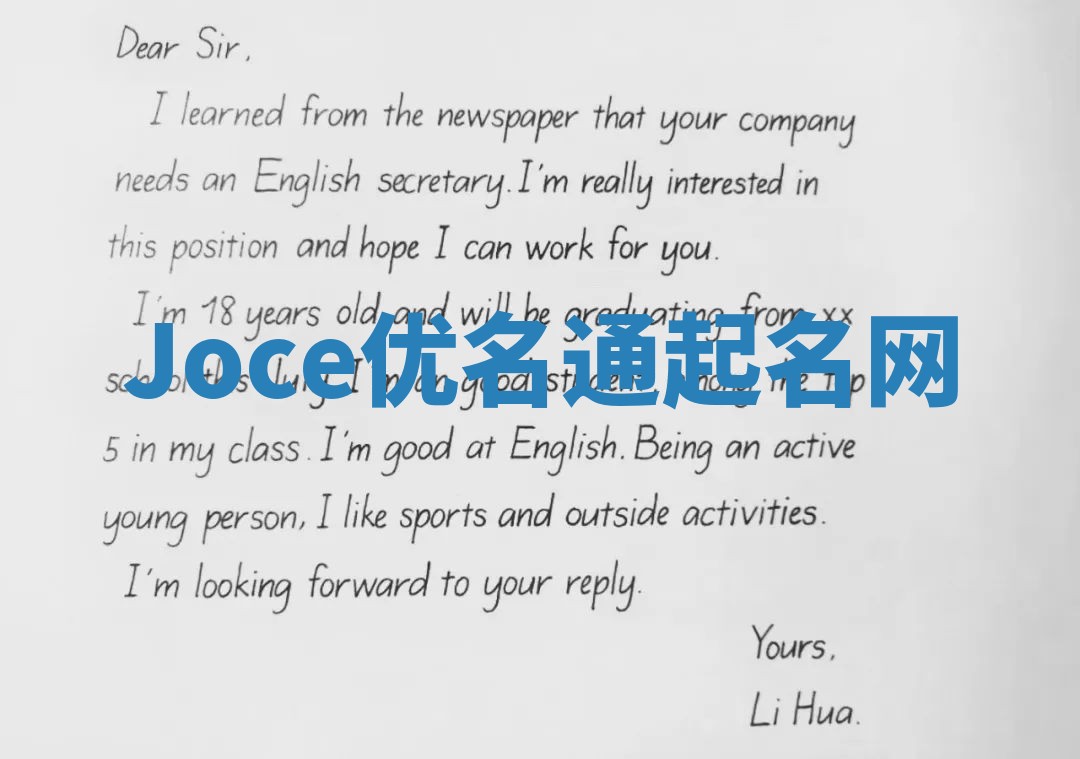 Dear Sir,
I learned from the newspaper that your company
needs an English secretary. I'm really interested in
this position and hope I can work for you.
I'm 18 years old and will be graduating from xx
Joce优名通起名网
school this July. I'm an good student among the top
5 in my class. I'm good at English. Being an active
young person, I like sports and outside activities.
I'm looking forward to your reply.
Yours,
Li Hua.